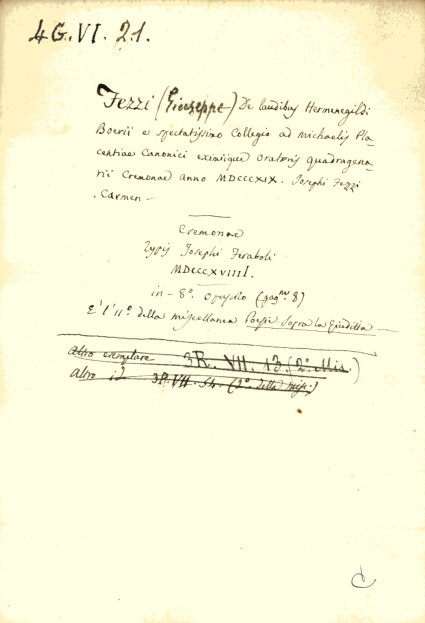 4G.VI.21.
Fezzi (Giuseppe) De laudibus Hermenegildi
Boerii e spectatissimo Collegio ad Michaelis Pla-
centiae Canonici eximiique oratoris quadragena-
rii Cremonae anno MDCCCXIX. Josephi Fezzi
Carmen —
Cremonae
Typis Josephi Feraboli
MDCCCXVIIII.
in-8º. opuscolo (pag.ne 8)
È l'11º. della miscellanea Poesie Sopra la Giuditta —
Altro esemplare 3R. VII. 13. (2º. Mis.)
Altro id 3R.VII.54. (2º. della mis.)